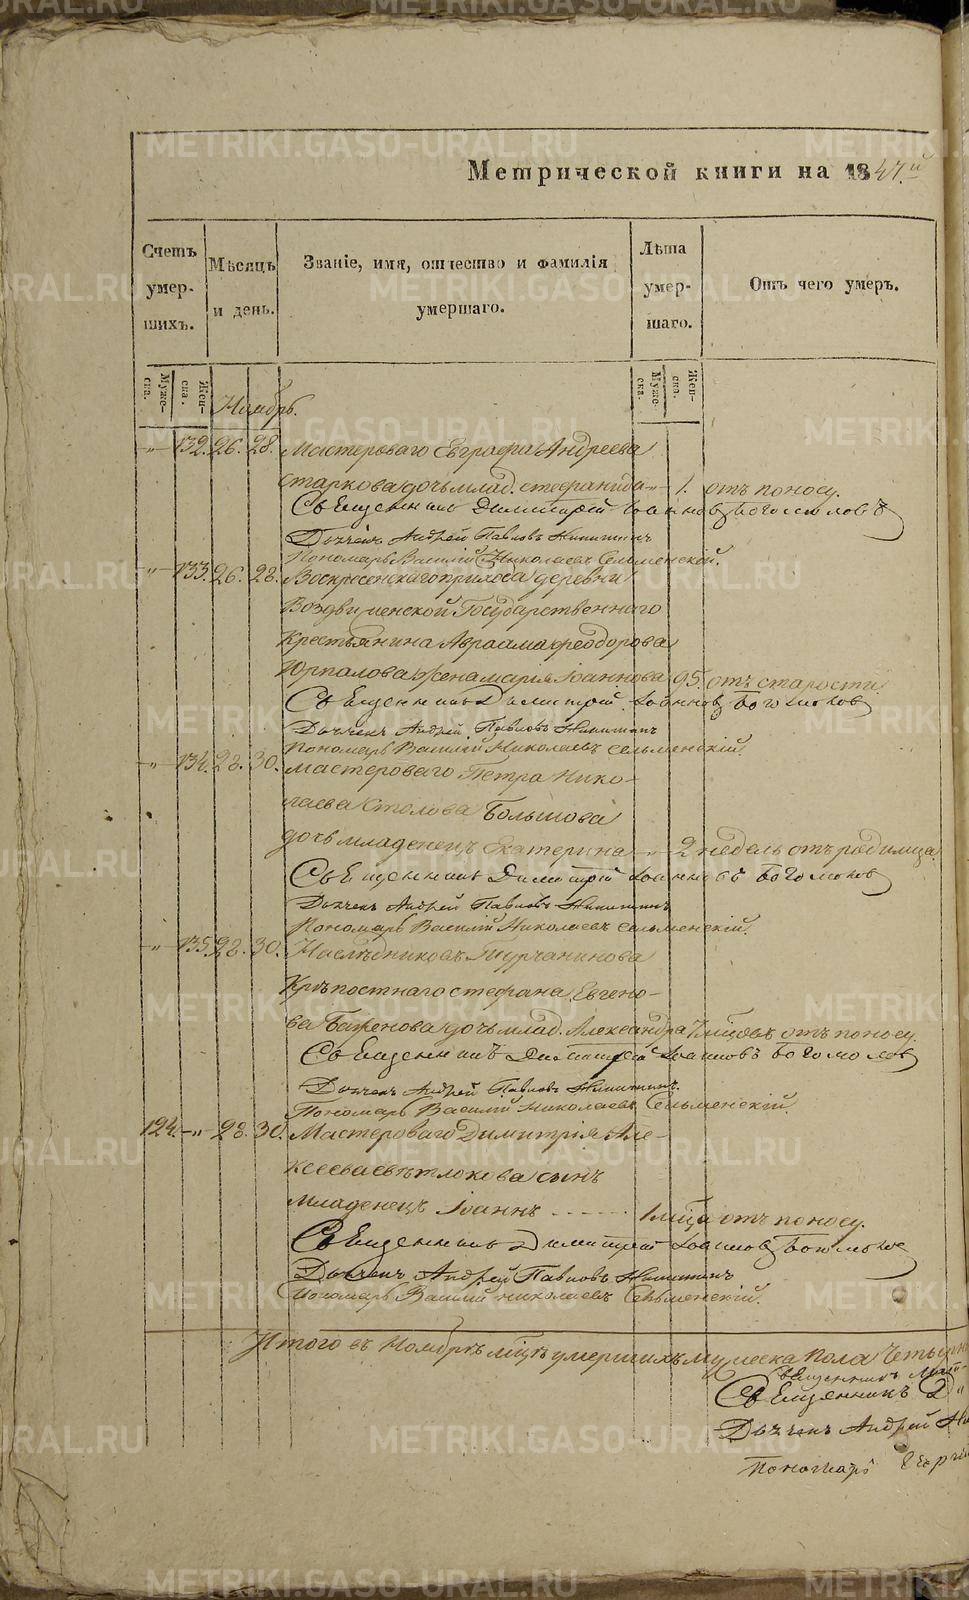 Метрической книги на 1847.й
Счетъ умер- шихъ.
Мѣсяцъ и день.
Званіе, имя, отчество и фамилія умершаго.
Лѣта умер- шаго.
Отъ чего умеръ.
Муже- ска.
Жен- ска.
Муже- ска.
Жен- ска.
Ноябрь.
-„- 132. 26. 28. Мастероваго Евграфа Андреева
Старкова дочь млад. Стефанида -„- 1. отъ поносу.
Священникъ Димитрій Іоанновъ Богомоловъ
Дьячекъ Андрей Павловъ Никитинъ
Пономарь Василій Николаевъ Сельменскій.
-„- 133. 26. 28. Воскресенскаго прихода деревни
Воздвиженской Государственнаго
Крестьянина Авраама Феодорова
Юрпалова жена Марія Іоаннова 95. отъ старости
Священникъ Димитрій Іоанновъ Богомоловъ
Дьячекъ Андрей Павловъ Никитинъ
Пономарь Василій Николаевъ Сельменскій
-„- 134. 28. 30. Мастероваго Петра Нико-
лаева Столова Большова
дочь младенецъ Екатерина -„- 2 недель отъ родимца.
Священникъ Димитрій Іоанновъ Богомоловъ
Дьячекъ Андрей Павловъ Никитинъ
Пономарь Василій Николаевъ Сельменскій.
-„- 135. 28. 30. Наслѣдниковъ Турчанинова
Крѣпостнаго Стефана Евгено-
ва Баженова дочь млад. Александра 7 мцовъ отъ поносу.
Священникъ Димитрій Іоанновъ Богомоловъ
Дьячекъ Андрей Павловъ Никитинъ.
Пономарь Василій Николаевъ Сельменскій.
124. -„- 28. 30. Мастероваго Димитрія Але-
ксеева Свѣтлокова сынъ
младенецъ Іоаннъ - - - - - 1 мца отъ поносу.
Священникъ Димитрій Іоанновъ Богомоловъ
Дьячекъ Андрей Павловъ Никитинъ
Пономарь Василій Николаевъ Сельменскій.
Итого въ Ноябрѣ мцѣ умершихъ мужеска пола Четырн
Священникъ
Священникъ Д
Дьячекъ Андрей Ни
Пономарь
METRIKI.GASO-URAL.RU